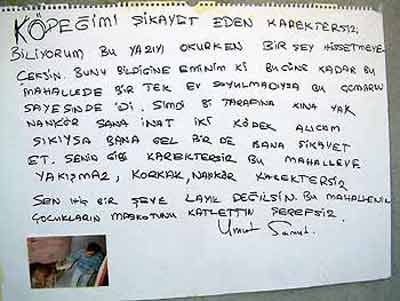 KÖPEĞİMİ ŞİKAYET EDEN KAREKTERSİZ,
BİLİYORUM BU YAZIYI OKURKEN BİR ŞEY HİSSETMEYE-
ÇEKSİN. BUNU BİLDİĞİNE EMİNİM Kİ BUGÜNE KADAR BU
MAHALLEDE BİR TEK EV SOYULMADIYSA BU ÇOMARIN
SAYESİNDE 'Dİ. ŞİMDİ Bİ TARAFINA KINA YAK
NANKÖR SANA İNAT İKİ KÖPEK ALICAM
SIKIYSA BANA GEL BİR DE BANA ŞİKAYET
ET. SENİN GİBİ KAREKTERSİZ BU MAHALLEYE
YAKIŞMAZ, KORKAK, NANKÖR KAREKTERSİZ
SEN HİÇ BİR ŞEYE LAYIK DEĞİLSİN. BU MAHALLENİN
ÇOCUKLARIN MASKOTUNU KATLETTİN ŞEREFSİZ.
Umut